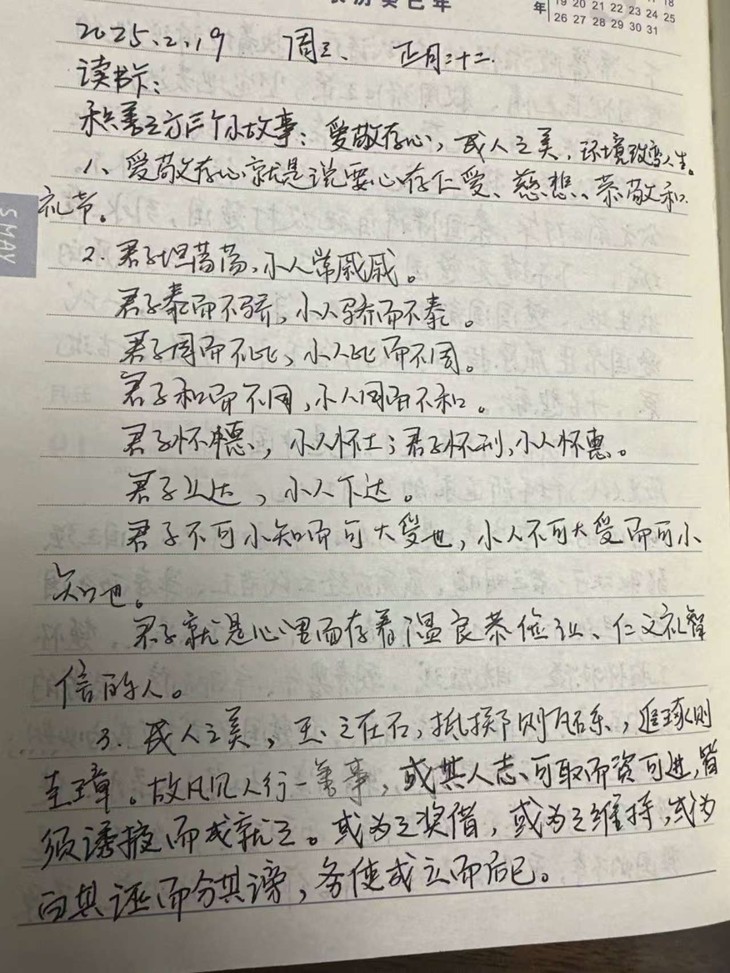 农历癸巳年
年 19 20 21 22 23 24 25
26 27 28 29 30 31
SMAY
2025.2.19 周三、 正月二十二.
读书卡:
积善之方三个小故事:爱敬存心,成人之美,环境改变人生。
1、爱敬存心就是说要心存仁爱、慈悲、恭敬和
礼节。
2.君子坦荡荡,小人常戚戚。
君子泰而不骄,小人骄而不泰。
君子周而不比,小人比而不周。
君子和而不同,小人同而不和。
君子怀德,小人怀土;君子怀刑,小人怀惠。
君子上达,小人下达。
君子不可小知而可大受也,小人不可大受而可小
知也。
君子就是心里面存着温良恭俭让、仁义礼智
信的人。
3.成人之美,玉之在石,抵掷则瓦砾,追琢则
圭璋。故凡见人行一善事,或其人志可取而资可进,皆
须诱掖而成就之。或为之奖借,或为之维持,或为
白其诬而分其谤,务使成立而后已。